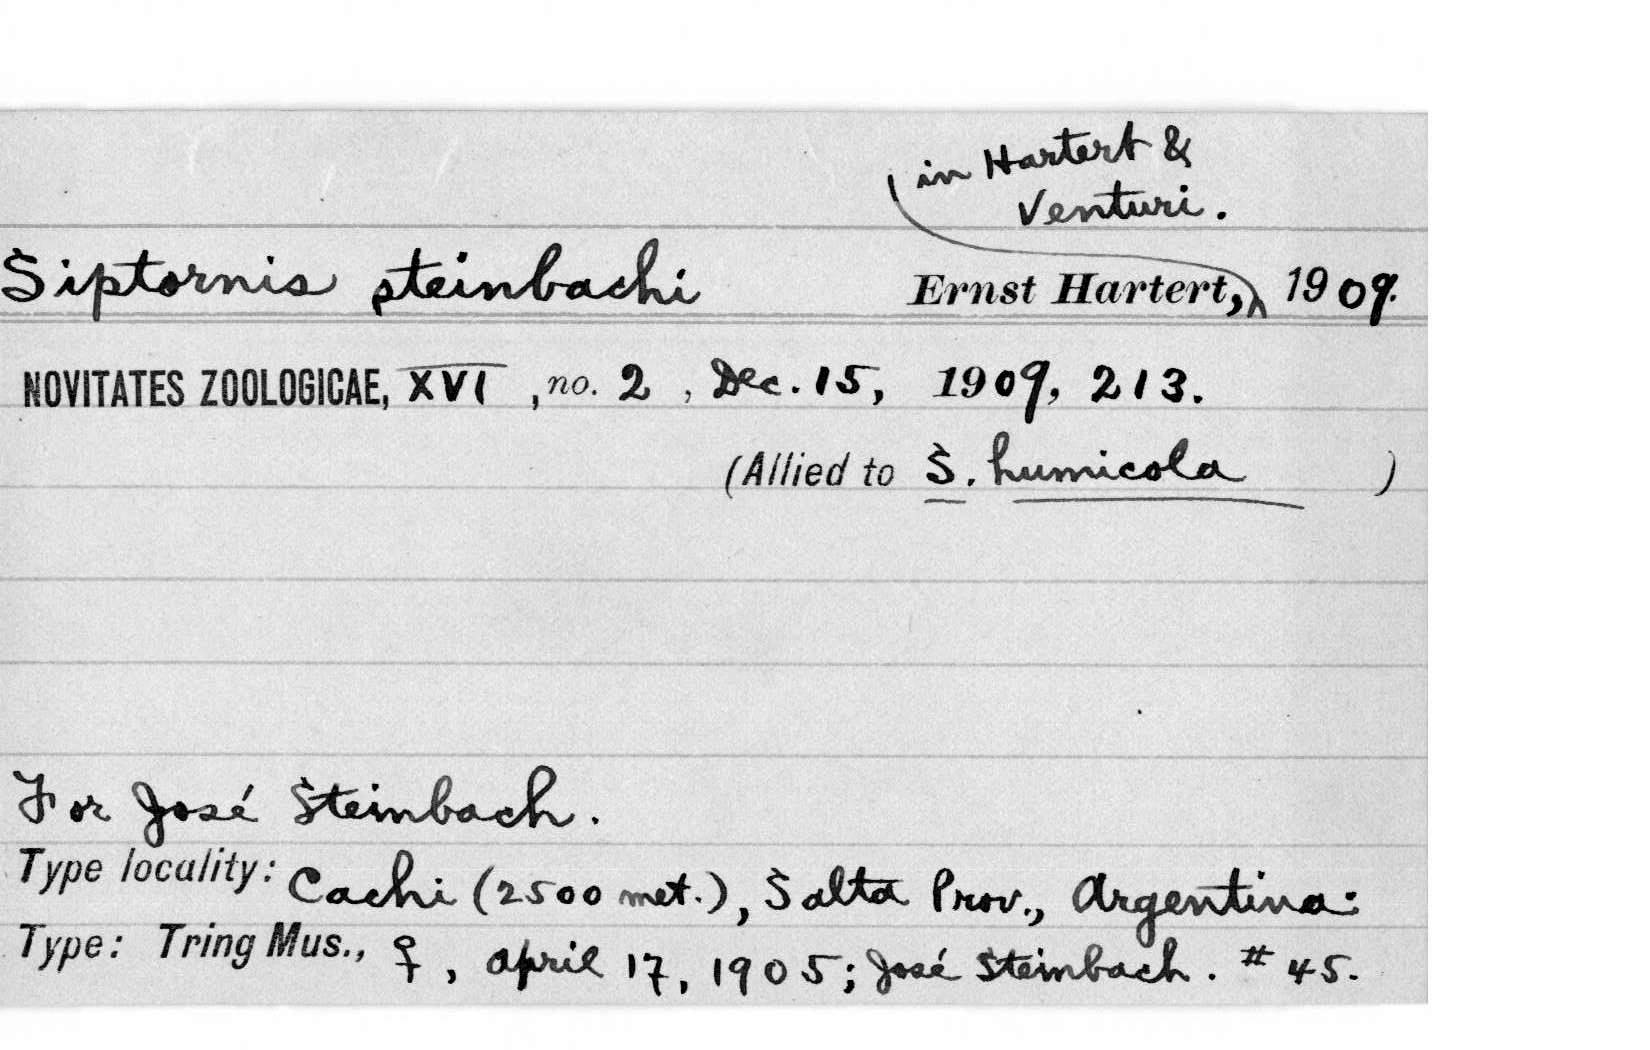 in Hartert &
Venturi.
Siptornis steinbachi Ernst Hartert, 1909.
NOVITATES ZOOLOGICAE, XVI, no. 2, Dec. 15, 1909, 213.
(Allied to S. humicola )
For José Steinbach.
Type locality: Cachi (2500 met.), Salta Prov., Argentina:
Type: Tring Mus., ♀, april 17, 1905; José Steinbach. # 45.